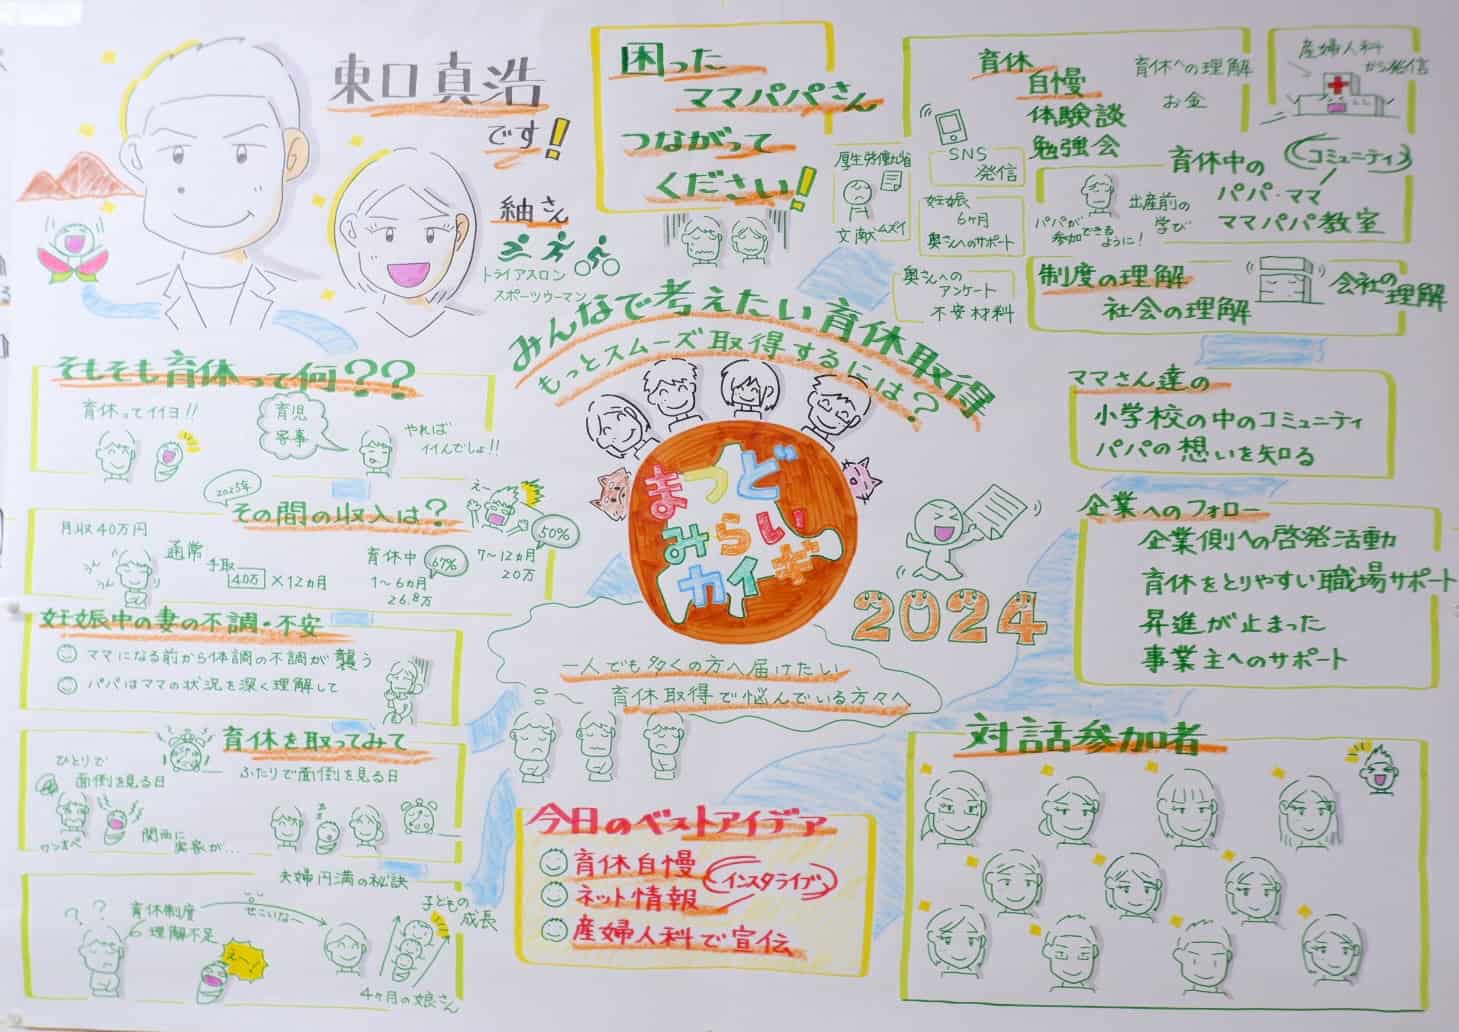 東口真浩
です!
紬さん
トライアスロン
スポーツウーマン
困った
ママパパさん
つながって
ください!
育休
自慢
体験談
勉強会
育休への理解
お金
産婦人科
から発信
SNS
発信
厚生労働省
文献ムズイ
妊娠
6ヶ月
奥さんへのサポート
奥さんへの
アンケート
不安材料
パパが
参加できる
ように!
出産前の
学び
育休中の
コミュニティ
パパ・ママ
ママパパ教室
制度の理解
社会の理解
会社の
理解
みんなで考えたい育休取得
もっとスムーズ取得するには?
まつど
みらい
カイギ
2024
一人でも多くの方へ届けたい
育休取得で悩んでいる方々へ
そもそも育休って何??
育休ってイイヨ!!
育児
家事
やれば
イイんでしょ!!
2025年
その間の収入は?
え〜
月収40万円
うん
うん
通常
手取
40万×12ヵ月
育休中
67%
1〜6ヵ月
26.8万
50%
7〜12ヵ月
20万
妊娠中の妻の不調・不安
ママになる前から体調の不調が襲う
パパはママの状況を深く理解して
育休を取ってみて
ひとりで
面倒を見る日
ワンオペ
関西に
実家が...
ふたりで面倒を見る日
夫婦円満の秘訣
? ?
育休制度
の理解不足
せこいな
え〜!
子どもの
成長
4ヶ月の娘さん
ママさん達の
小学校の中のコミュニティ
パパの想いを知る
企業へのフォロー
企業側への啓発活動
育休をとりやすい職場サポート
昇進が止まった
事業主へのサポート
今日のベストアイデア
育休自慢
インスタライブ
ネット情報
産婦人科で宣伝
対話参加者